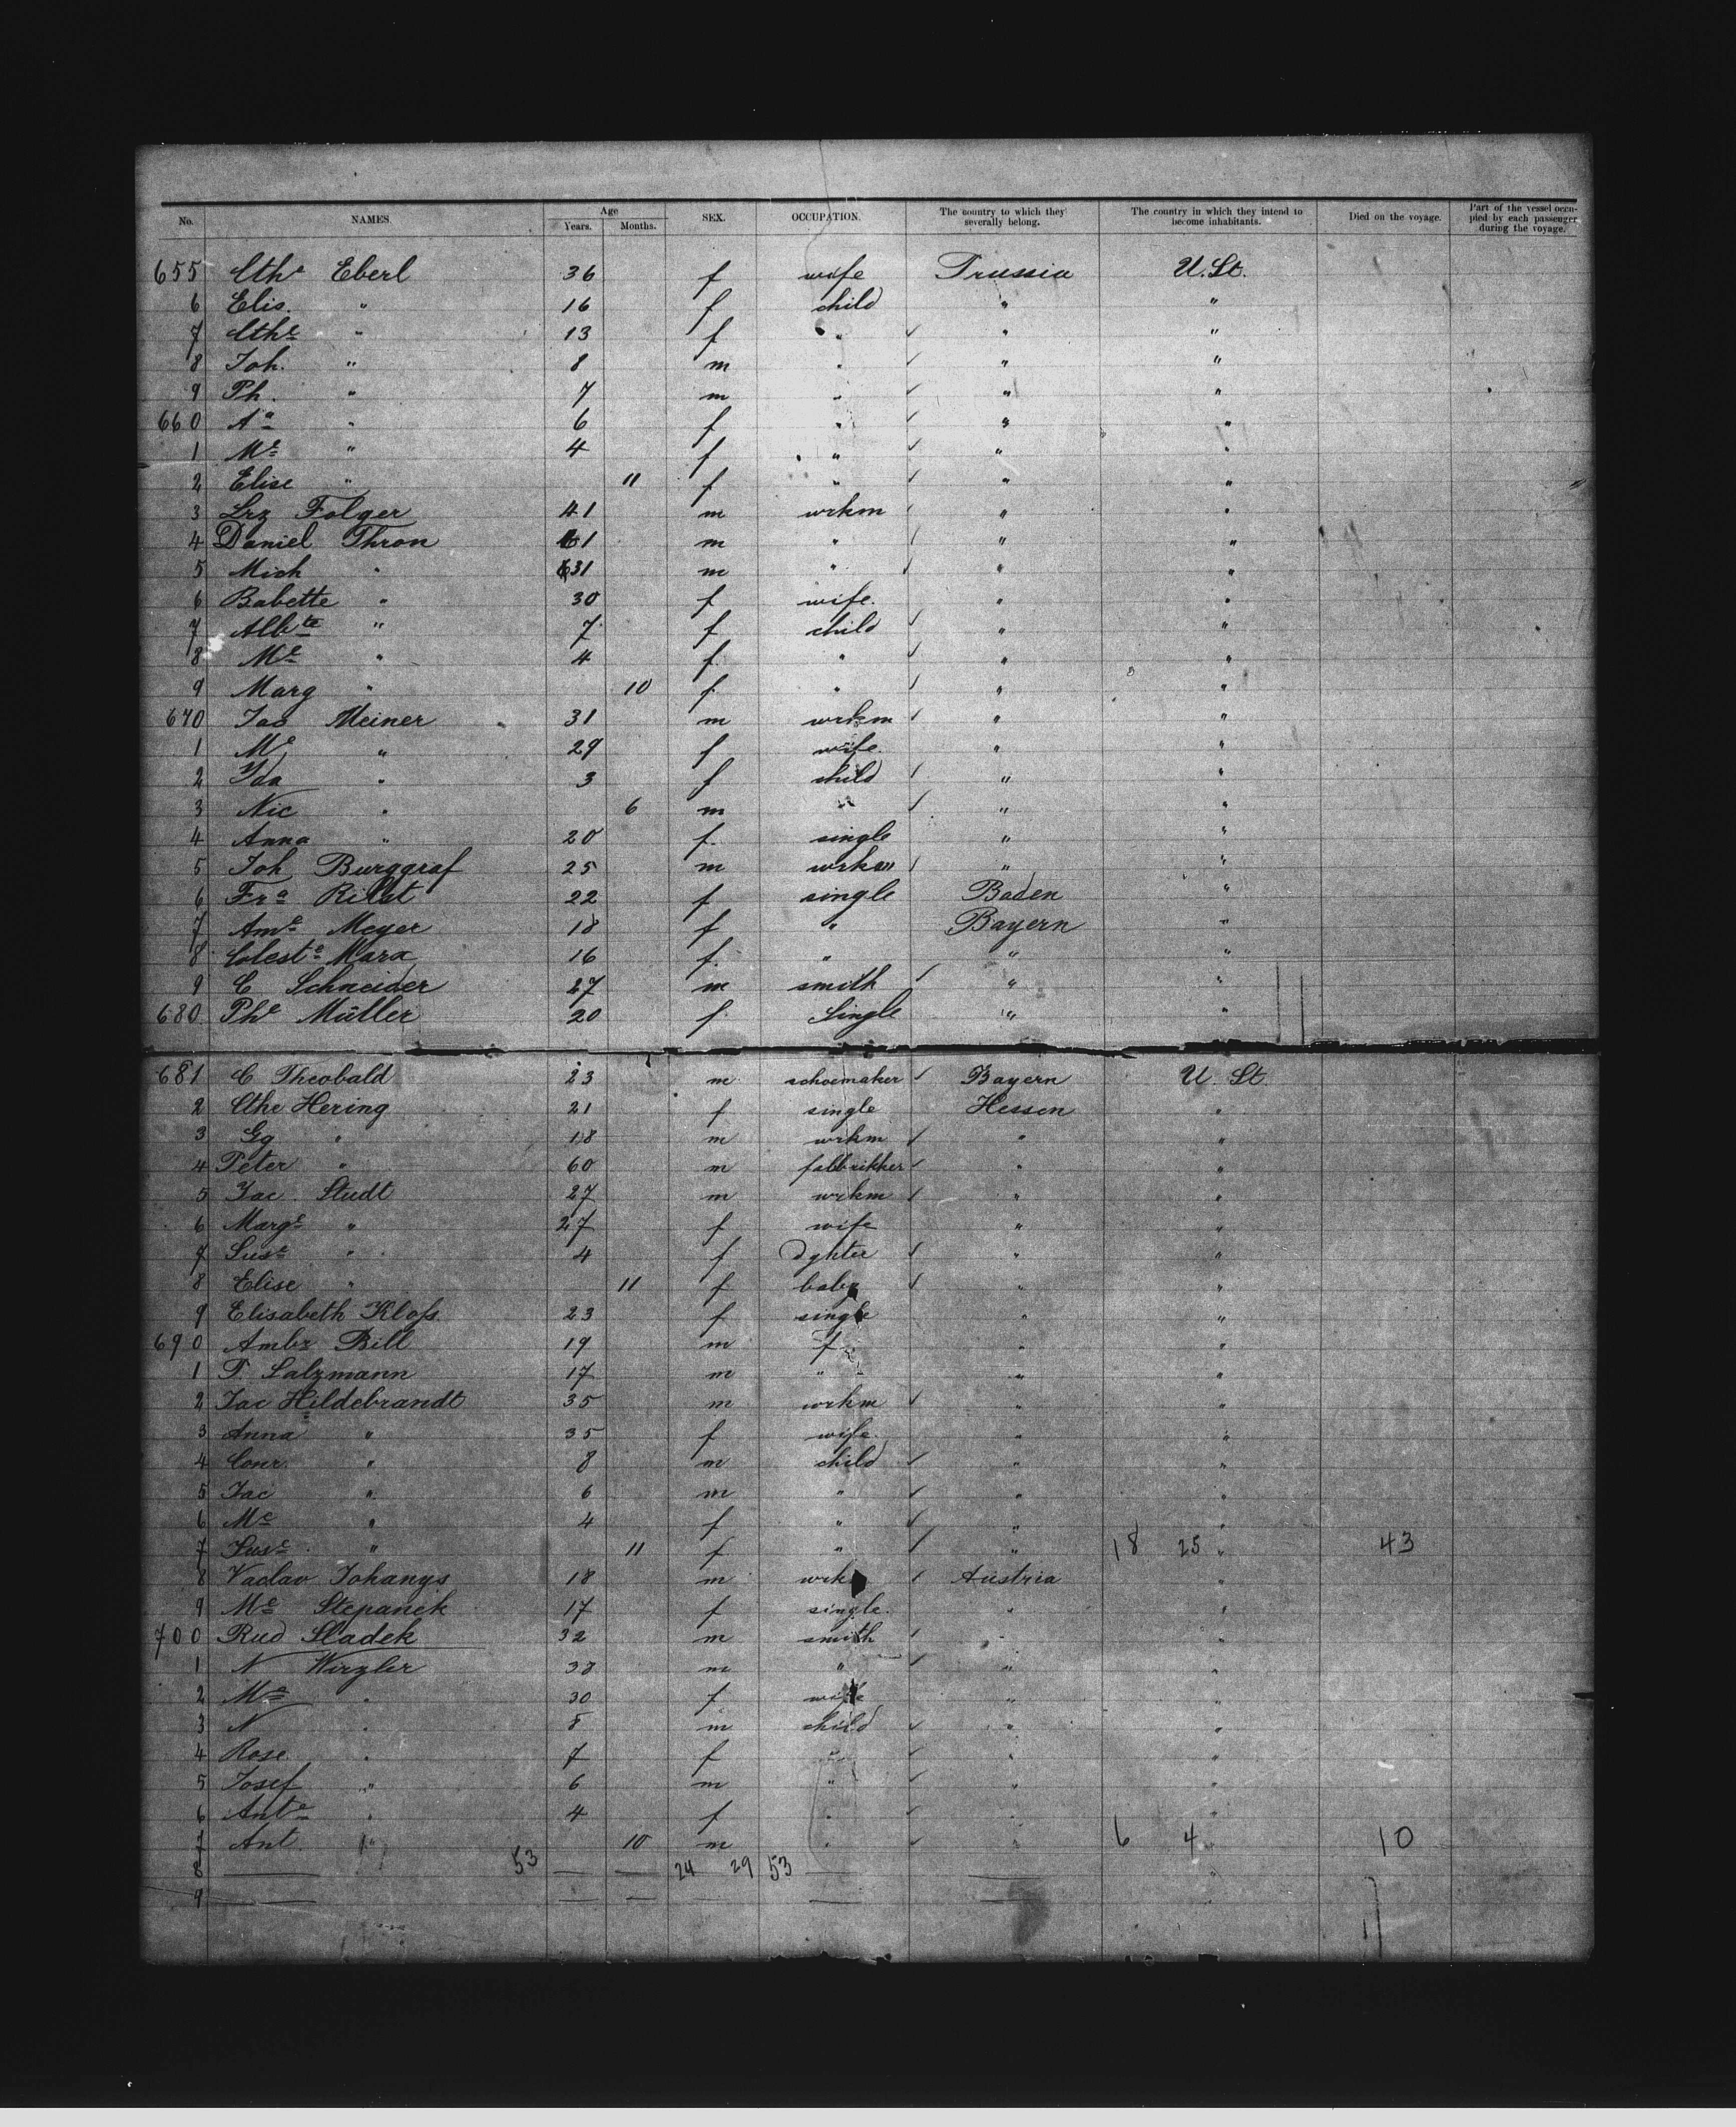 No. NAMES. Age Years. Months. SEX. OCCUPATION. The country to which they severally belong. The country in which they intend to become inhabitants. Died on the voyage. Part of the vessel occupied by each passenger during the voyage.
655 Cthe Eberl 36 f wife Prussia U. St.
6 Elis. " 16 f child " "
7 Cthe " 13 f " ✓ " "
8 Joh. " 8 m " ✓ " "
9 Ph. " 7 m " ✓ " "
660 Aa " 6 f " ✓ " "
1 Me " 4 f " ✓ " "
2 Elise " 11 f " ✓ " "
3 Lrz Folger 41 m wrkm ✓ " "
4 Daniel Thron 61 m " ✓ " "
5 Mich " 31 m " ✓ " "
6 Babette " 30 f wife. " "
7 Albte " 7 f child ✓ " "
8 Me " 4 f " ✓ " "
9 Marg " 10 f " ✓ " "
670 Jac Meiner 31 m wrkm ✓ " "
1 Me " 29 f wife. " "
2 Yda " 3 f child ✓ " "
3 Nic " 6 m " ✓ " "
4 Anna " 20 f single " "
5 Joh Burggraf 25 m wrkm ✓ " "
6 Fra 22 f single Baden "
7 Ame Meyer 18 f " Bayern "
8 Celeste Marx 16 f " " "
9 C Schneider 27 m smith ✓ " "
680 Phe Müller 20 f Single " "
681 C Theobald 23 m schoemaker ✓ Bayern U. St.
2 Cthe Hering 21 f single Hessen "
3 Gg " 18 m wrkm ✓ " "
4 Peter " 60 m fabbrikker ✓ " "
5 Jac. Studt 27 m wrkm ✓ " "
6 Marge " 27 f wife " "
7 Suse " 4 f dghter ✓ " "
8 Elise " 11 f baby ✓ " "
9 Elisabeth Kloſs 23 f single " "
690 Ambr Bill 19 m f " "
1 P. Salzmann 17 m " " "
2 Jac Hildebrandt 35 m wrkm ✓ " "
3 Anna " 35 f wife. " "
4 Conr. " 8 m child ✓ " "
5 Jac " 6 m " ✓ " "
6 Me " 4 f " ✓ " "
7 Suse " 11 f " ✓ " 18 25 " 43
8 Vaclav Johanys 18 m wrk ✓ Austria "
9 Me Stepanek 17 f single. " "
700 Rud Sladek 32 m smith ✓ " "
1 N Wirzler 38 m " ✓ " "
2 Me " 30 f wife " "
3 N " 8 m child ✓ " "
4 Rose " 7 f " ✓ " "
5 Josef " 6 m " ✓ " "
6 Ante " 4 f " ✓ " "
7 Ant. " 10 m " ✓ " 6 4 " 10
8 — 53 — — 24 29 53 — — "
9 — — — — —